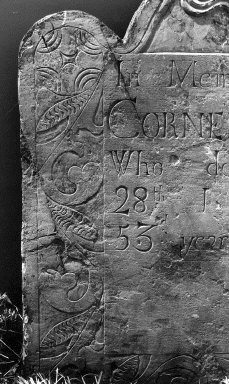 In Mem
CORNE
Who d
28th J
53d year